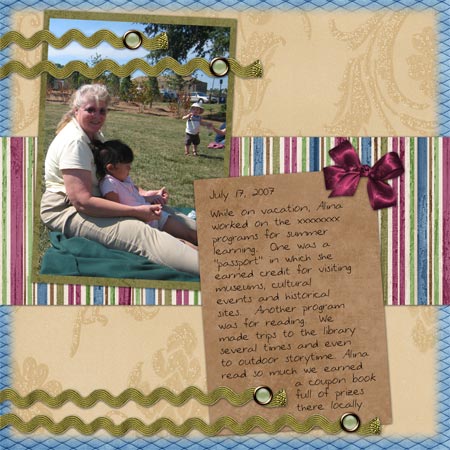 July 17, 2007
While on vacation, Alina
worked on the xxxxxxxx
programs for summer
learning. One was a
"passport" in which she
earned credit for visiting
museums, cultural
events and historical
sites. Another program
was for reading. We
made trips to the library
several times and even
to outdoor storytime. Alina
read so much we earned
a coupon book
full of prizes
there locally